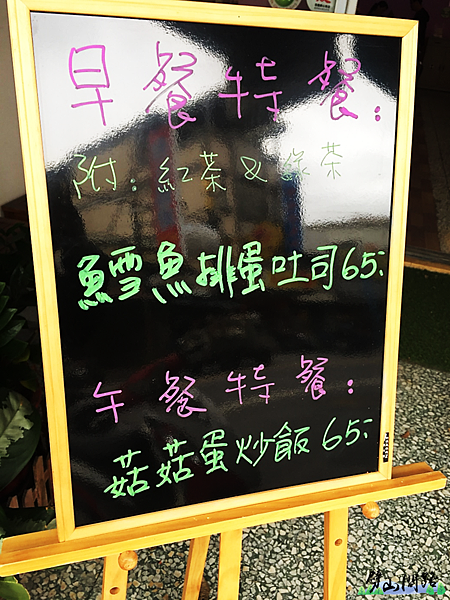 早餐特餐:
附:紅茶&綠茶
鱈魚排蛋吐司65:
午餐特餐:
菇菇蛋炒飯65: